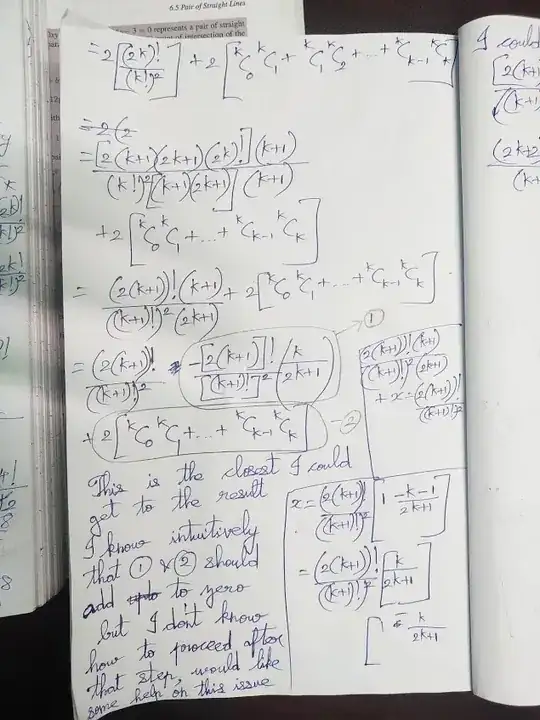 6.5 Pair of Straight Lines
3 = 0 represents a pair of straight
of intersection of the
= 2 [(2k)! / (k!)²] + 2 [ᵏC₀ ᵏC₁ + ᵏC₁ ᵏC₂ + ... + ᵏCₖ₋₁ ᵏCₖ]
= 2 (2
= [2(k+1)(2k+1)(2k)!] (k+1) / (k!)² [(k+1)(2k+1)] (k+1)
+ 2 [ᵏC₀ ᵏC₁ + ... + ᵏCₖ₋₁ ᵏCₖ]
= (2(k+1))! (k+1) / ((k+1)!)² (2k+1) + 2 [ᵏC₀ ᵏC₁ + ... + ᵏCₖ₋₁ ᵏCₖ]
= (2(k+1))! / ((k+1)!)² - [2(k+1)]! / [(k+1)!]² (k / 2k+1) → ①
+ 2 [ᵏC₀ ᵏC₁ + ... + ᵏCₖ₋₁ ᵏCₖ] - ②
This is the closest I could
get to the result
I know intuitively
that ① & ② should
add to zero
but I don't know
how to proceed after
that step, would like
some help on this issue
(2(k+1))! (k+1) / ((k+1)!)² (2k+1)
+ x = (2(k+1))! / ((k+1)!)²
x = (2(k+1))! / ((k+1)!)² [1 - k - 1 / 2k+1]
= (2(k+1))! / ((k+1)!)² [k / 2k+1]
[ = k / 2k+1
I could
[2(k+1
((k+1)
(2k+2)
(k+